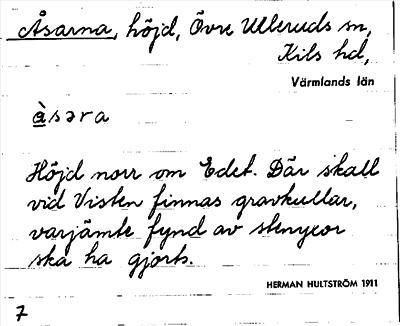 Åsarna, höjd, Övre Ulleruds sn,
Kils hd,
Värmlands län
à̲səra
Höjd norr om Edet. Där skall
vid Visten finnas gravkullar,
varjämte fynd av stenyxor
ska ha gjorts.
HERMAN HULTSTRÖM 1911
7